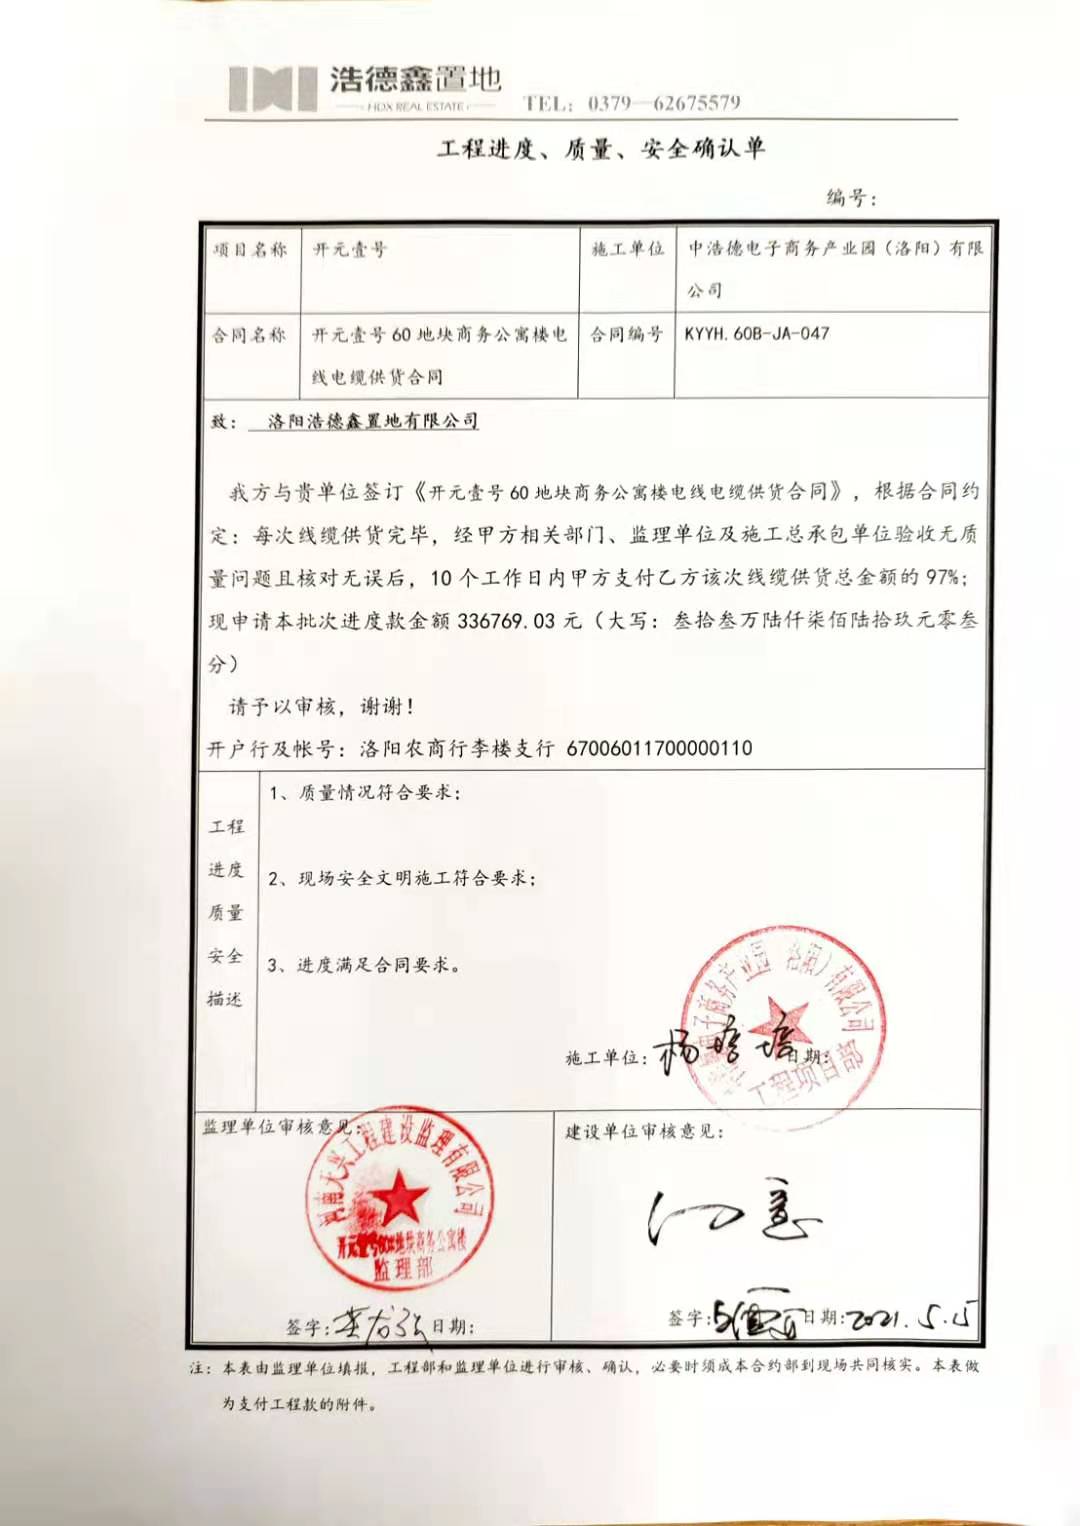 浩德鑫置地
HDX REAL ESTATE
TEL：0379—62675579
工程进度、质量、安全确认单
编号：
项目名称 开元壹号 施工单位 中浩德电子商务产业园（洛阳）有限
公司
合同名称 开元壹号60地块商务公寓楼电 合同编号 KYYH.60B-JA-047
线电缆供货合同
致： 洛阳浩德鑫置地有限公司
我方与贵单位签订《开元壹号60地块商务公寓楼电线电缆供货合同》，根据合同约
定：每次线缆供货完毕，经甲方相关部门、监理单位及施工总承包单位验收无质
量问题且核对无误后，10个工作日内甲方支付乙方该次线缆供货总金额的97%；
现申请本批次进度款金额336769.03元（大写：叁拾叁万陆仟柒佰陆拾玖元零叁
分）
请予以审核，谢谢！
开户行及帐号：洛阳农商行李楼支行 67006011700000110
工程
进度
质量
安全
描述
1、质量情况符合要求；
2、现场安全文明施工符合要求；
3、进度满足合同要求。
电子商务产业园（洛阳）有限公司
工程项目部
施工单位： 日期：
监理单位审核意见：
河南天兴工程建设监理有限公司
开元壹号60#地块商务公寓楼
监理部
签字： 日期：
建设单位审核意见：
同意
签字： 日期：2021.5.15
注：本表由监理单位填报，工程部和监理单位进行审核、确认，必要时须成本合约部到现场共同核实。本表做
为支付工程款的附件。